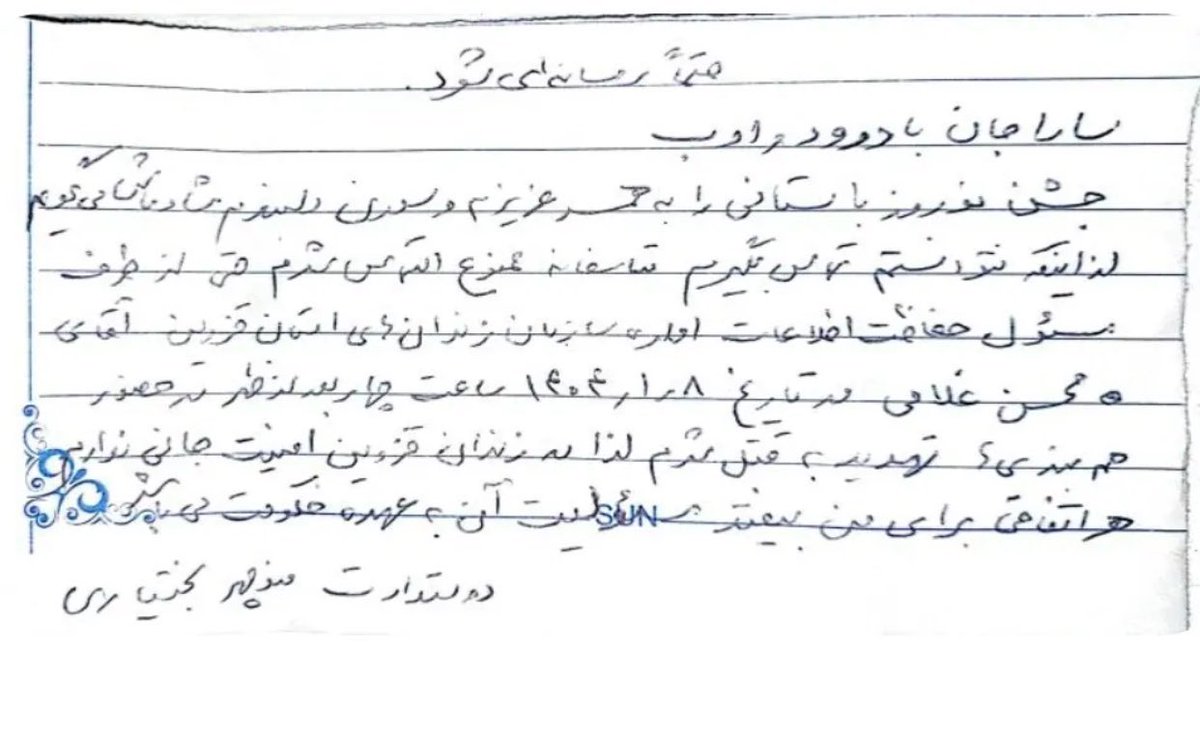 حتماً رسانه‌ای شود.
سارا جان با درود و ادب
جشن نوروز باستانی را به عزیزم و دلبندم شادباش می‌گویم
از اینکه نتوانستم تماس بگیرم متاسفانه ممنوع التماس شدم حتی از طرف
مسئول حفاظت اطلاعات اداره سازمان زندان‌های استان قزوین آقای
محسن غلامی در تاریخ ۱۴۰۴/۱/۸ ساعت چهار بعد از ظهر در حضور
هم بندی تهدید به قتل شدم لذا در زندان قزوین امنیت جانی ندارم
هر اتفاقی برای من بیفتد مسئولیت آن به عهده حکومت می باشد
SUN
دوستدارت منوچهر بختیاری